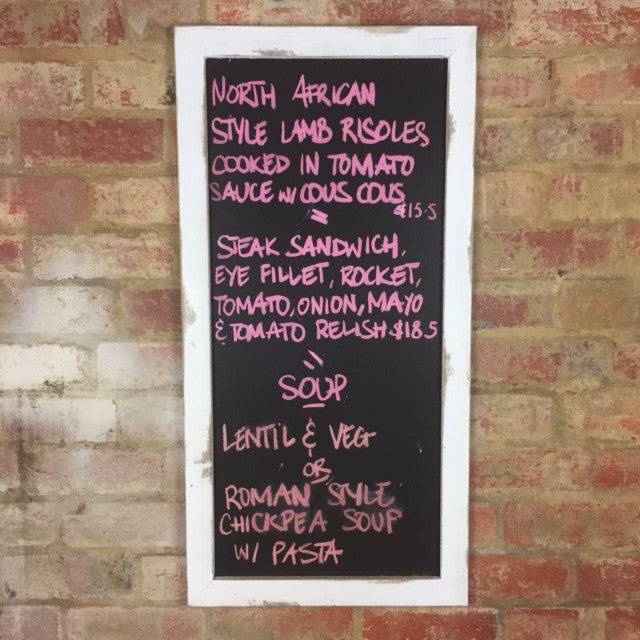 NORTH AFRICAN
STYLE LAMB RISOLES
COOKED IN TOMATO
SAUCE W/ COUS COUS
$15.5
STEAK SANDWICH,
EYE FILLET, ROCKET,
TOMATO, ONION, MAYO
& TOMATO RELISH $18.5
SOUP
LENTIL & VEG
OR
ROMAN STYLE
CHICKPEA SOUP
W/ PASTA